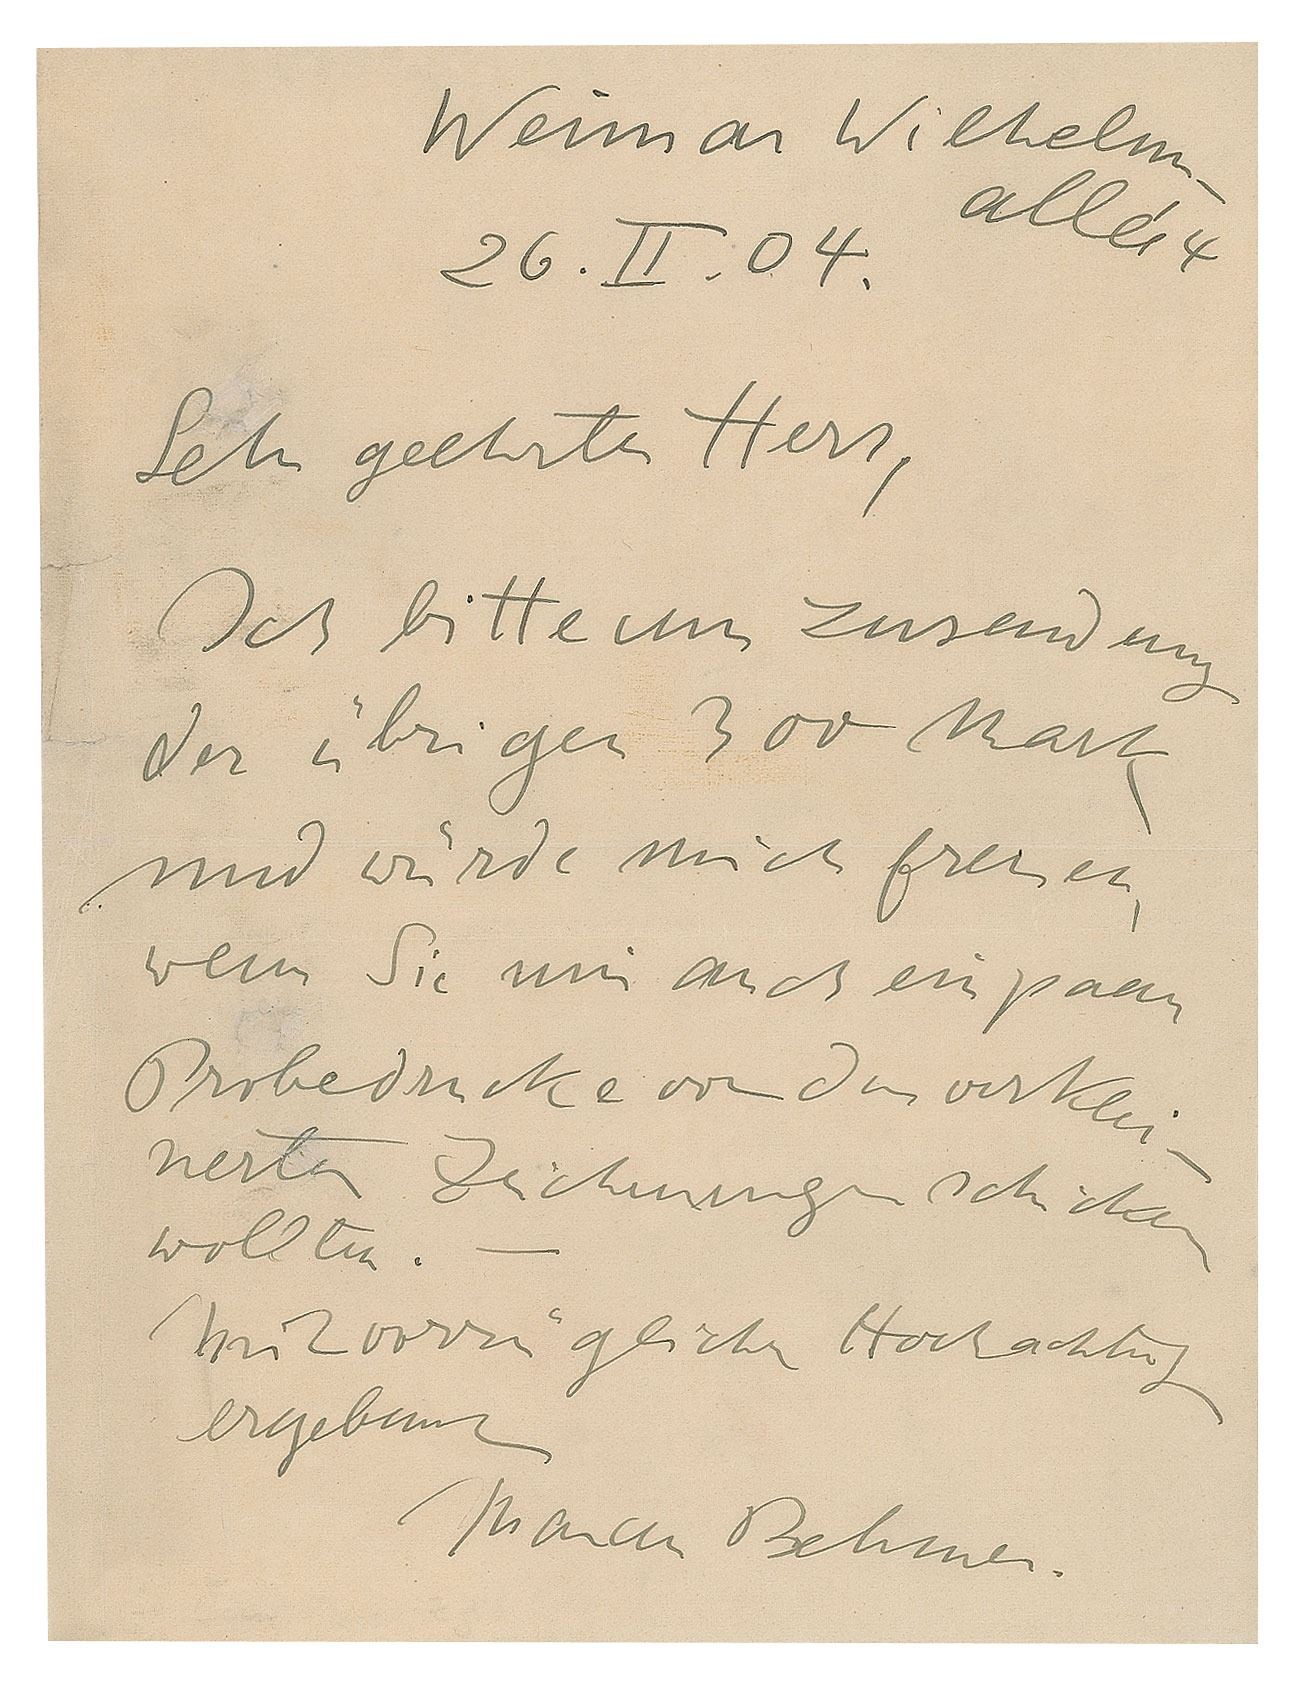 Weimar Wilhelm-
allée 4
26. II. 04.
Sehr geehrter Herr,
Ich bitte um Zusendung
der übrigen 300 Mark
und würde mich freuen,
wenn Sie mir auch ein paar
Probedrucke von den verklei-
nerten Zeichnungen schicken
wollten. —
Mit vorzüglicher Hochachtung
ergebenst
Marcus Behmer.